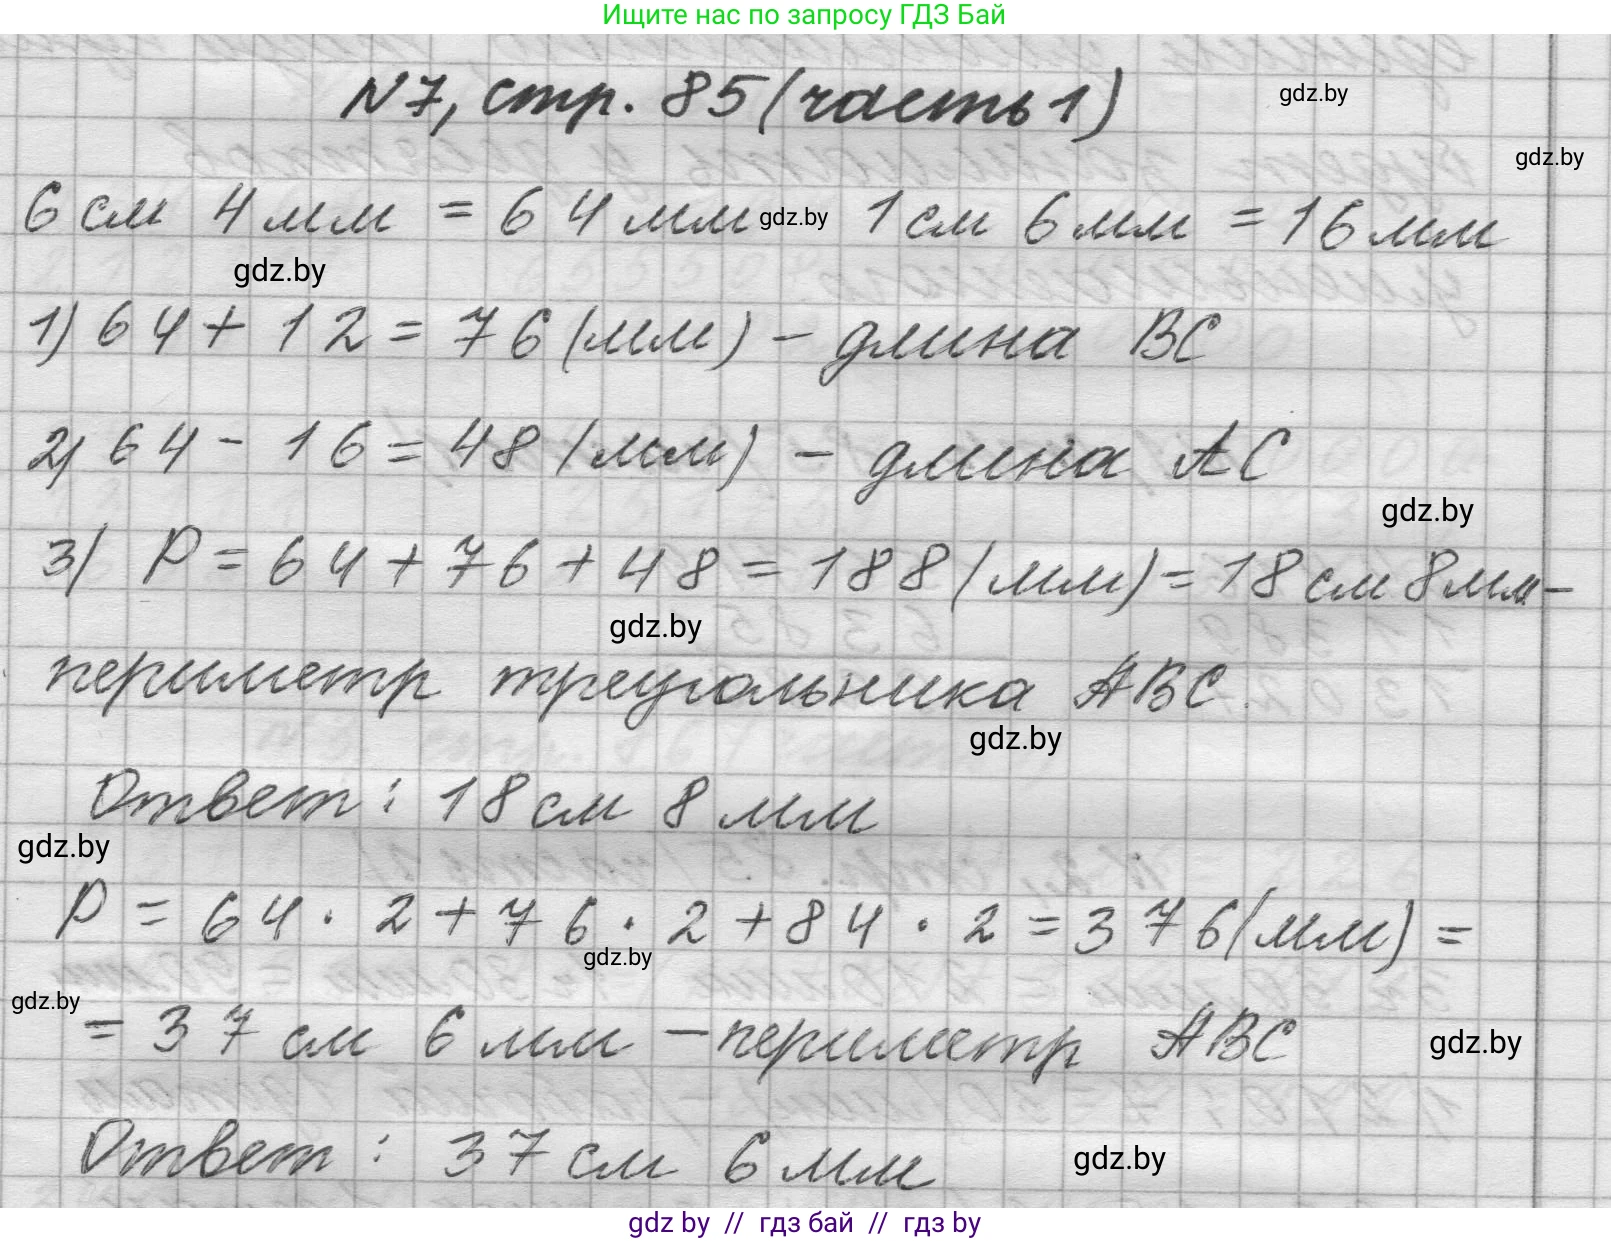 Ищите нас по запросу ГДЗ Бай
N7, стр. 85 (часть 1)
gdz.by
gdz.by
6 см 4 мм = 64 мм gdz.by 1 см 6 мм = 16 мм
gdz.by
1) 64 + 12 = 76 (мм) - длина BC
2) 64 - 16 = 48 (мм) - длина AC
gdz.by
3) P = 64 + 76 + 48 = 188 (мм) = 18 см 8 мм -
gdz.by
периметр треугольника ABC.
gdz.by
Ответ: 18 см 8 мм
gdz.by
P = 64 · 2 + 76 · 2 + 84 · 2 = 376 (мм) =
gdz.by
gdz.by
= 37 см 6 мм - периметр ABC
gdz.by
Ответ: 37 см 6 мм
gdz.by
gdz by // гдз бай // гдз by